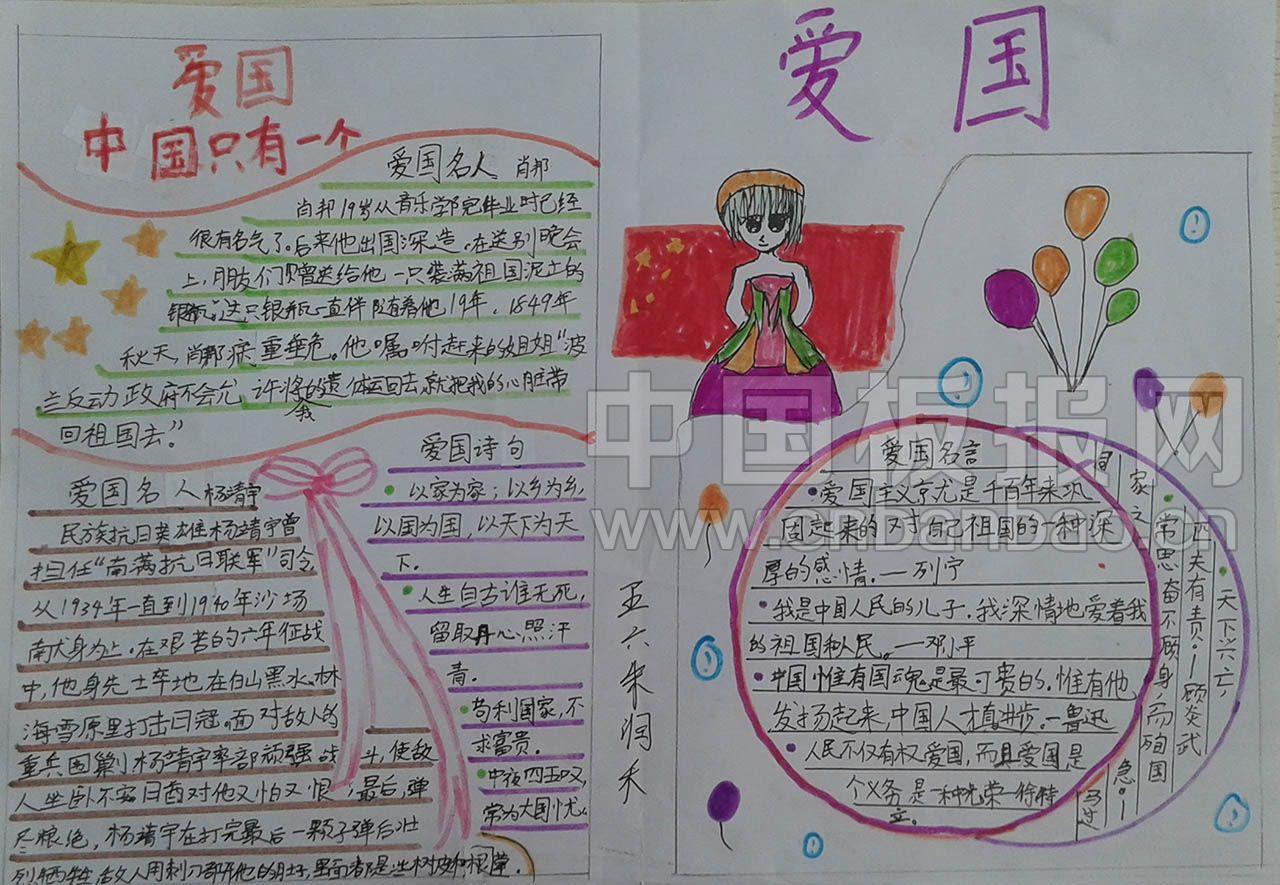 爱国
中国只有一个
爱国名人 肖邦
肖邦19岁从音乐学院毕业时已经
很有名气了。后来他出国深造。在送别晚会
上，朋友们赠送给他一只装满祖国泥土的
银瓶。这只银瓶一直伴随着他19年。1849年
秋天，肖邦病重垂危。他嘱咐赶来的姐姐“波
兰反动政府不会允许将我的遗体运回去，就把我的心脏带
回祖国去。”
爱国名人杨靖宇
民族抗日英雄杨靖宇曾
担任“南满抗日联军”司令，
从1934年一直到1940年沙场
南犬身为止。在艰苦的六年征战
中，他身先士卒地在白山黑水、林
海雪原里打击日冠。面对敌人的
重兵围剿杨靖宇率部顽强战斗，使敌
人坐卧不安日酋对他又怕又恨，最后，弹
尽粮绝，杨靖宇在打完最后一颗子弹后壮
烈牺牲，敌人用刺刀剖开他的肚子，里面都是些树皮和根草．
爱国诗句
以家为家；以乡为乡，
以国为国，以天下为天
下．
人生自古谁无死，
留取丹心照汗
青．
苟利国家，不
求富贵．
中夜四五叹，
常为大国忧．
爱国
五六朱润禾
爱国名言
爱国主义京尤是千百年来巩
固起来的对自己祖国的一种深
厚的感情．—列宁
我是中国人民的儿子．我深情地爱着我
的祖国和人民．—邓小平
中国惟有国魂是最可贵的．惟有他
发扬起来，中国人才有真进步．—鲁迅
人民不仅有权爱国，而且爱国是
个义务是一种光荣—徐特
立．
天下兴亡，
匹夫有责．—顾炎武
常思奋不顾身，而殉国
家之
急．—
司
马迁
中国板报网
www.cnbanbao.cn